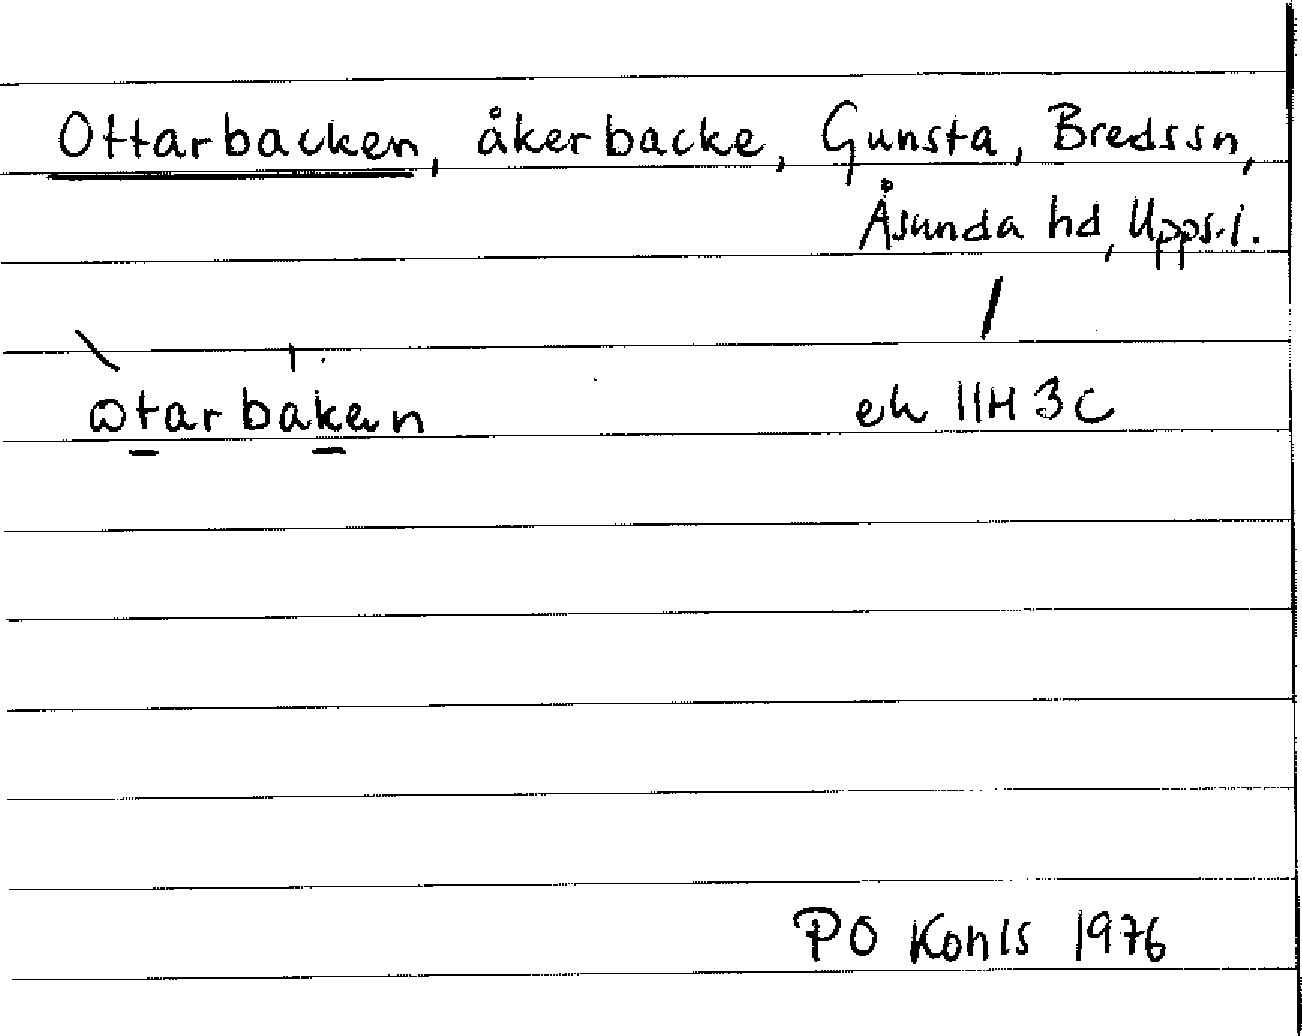 Ottarbacken, åkerbacke, Gunsta, Bredssn,
Åsunda hd, Upps.l.
ek 11H 3C
PO Kohls 1976